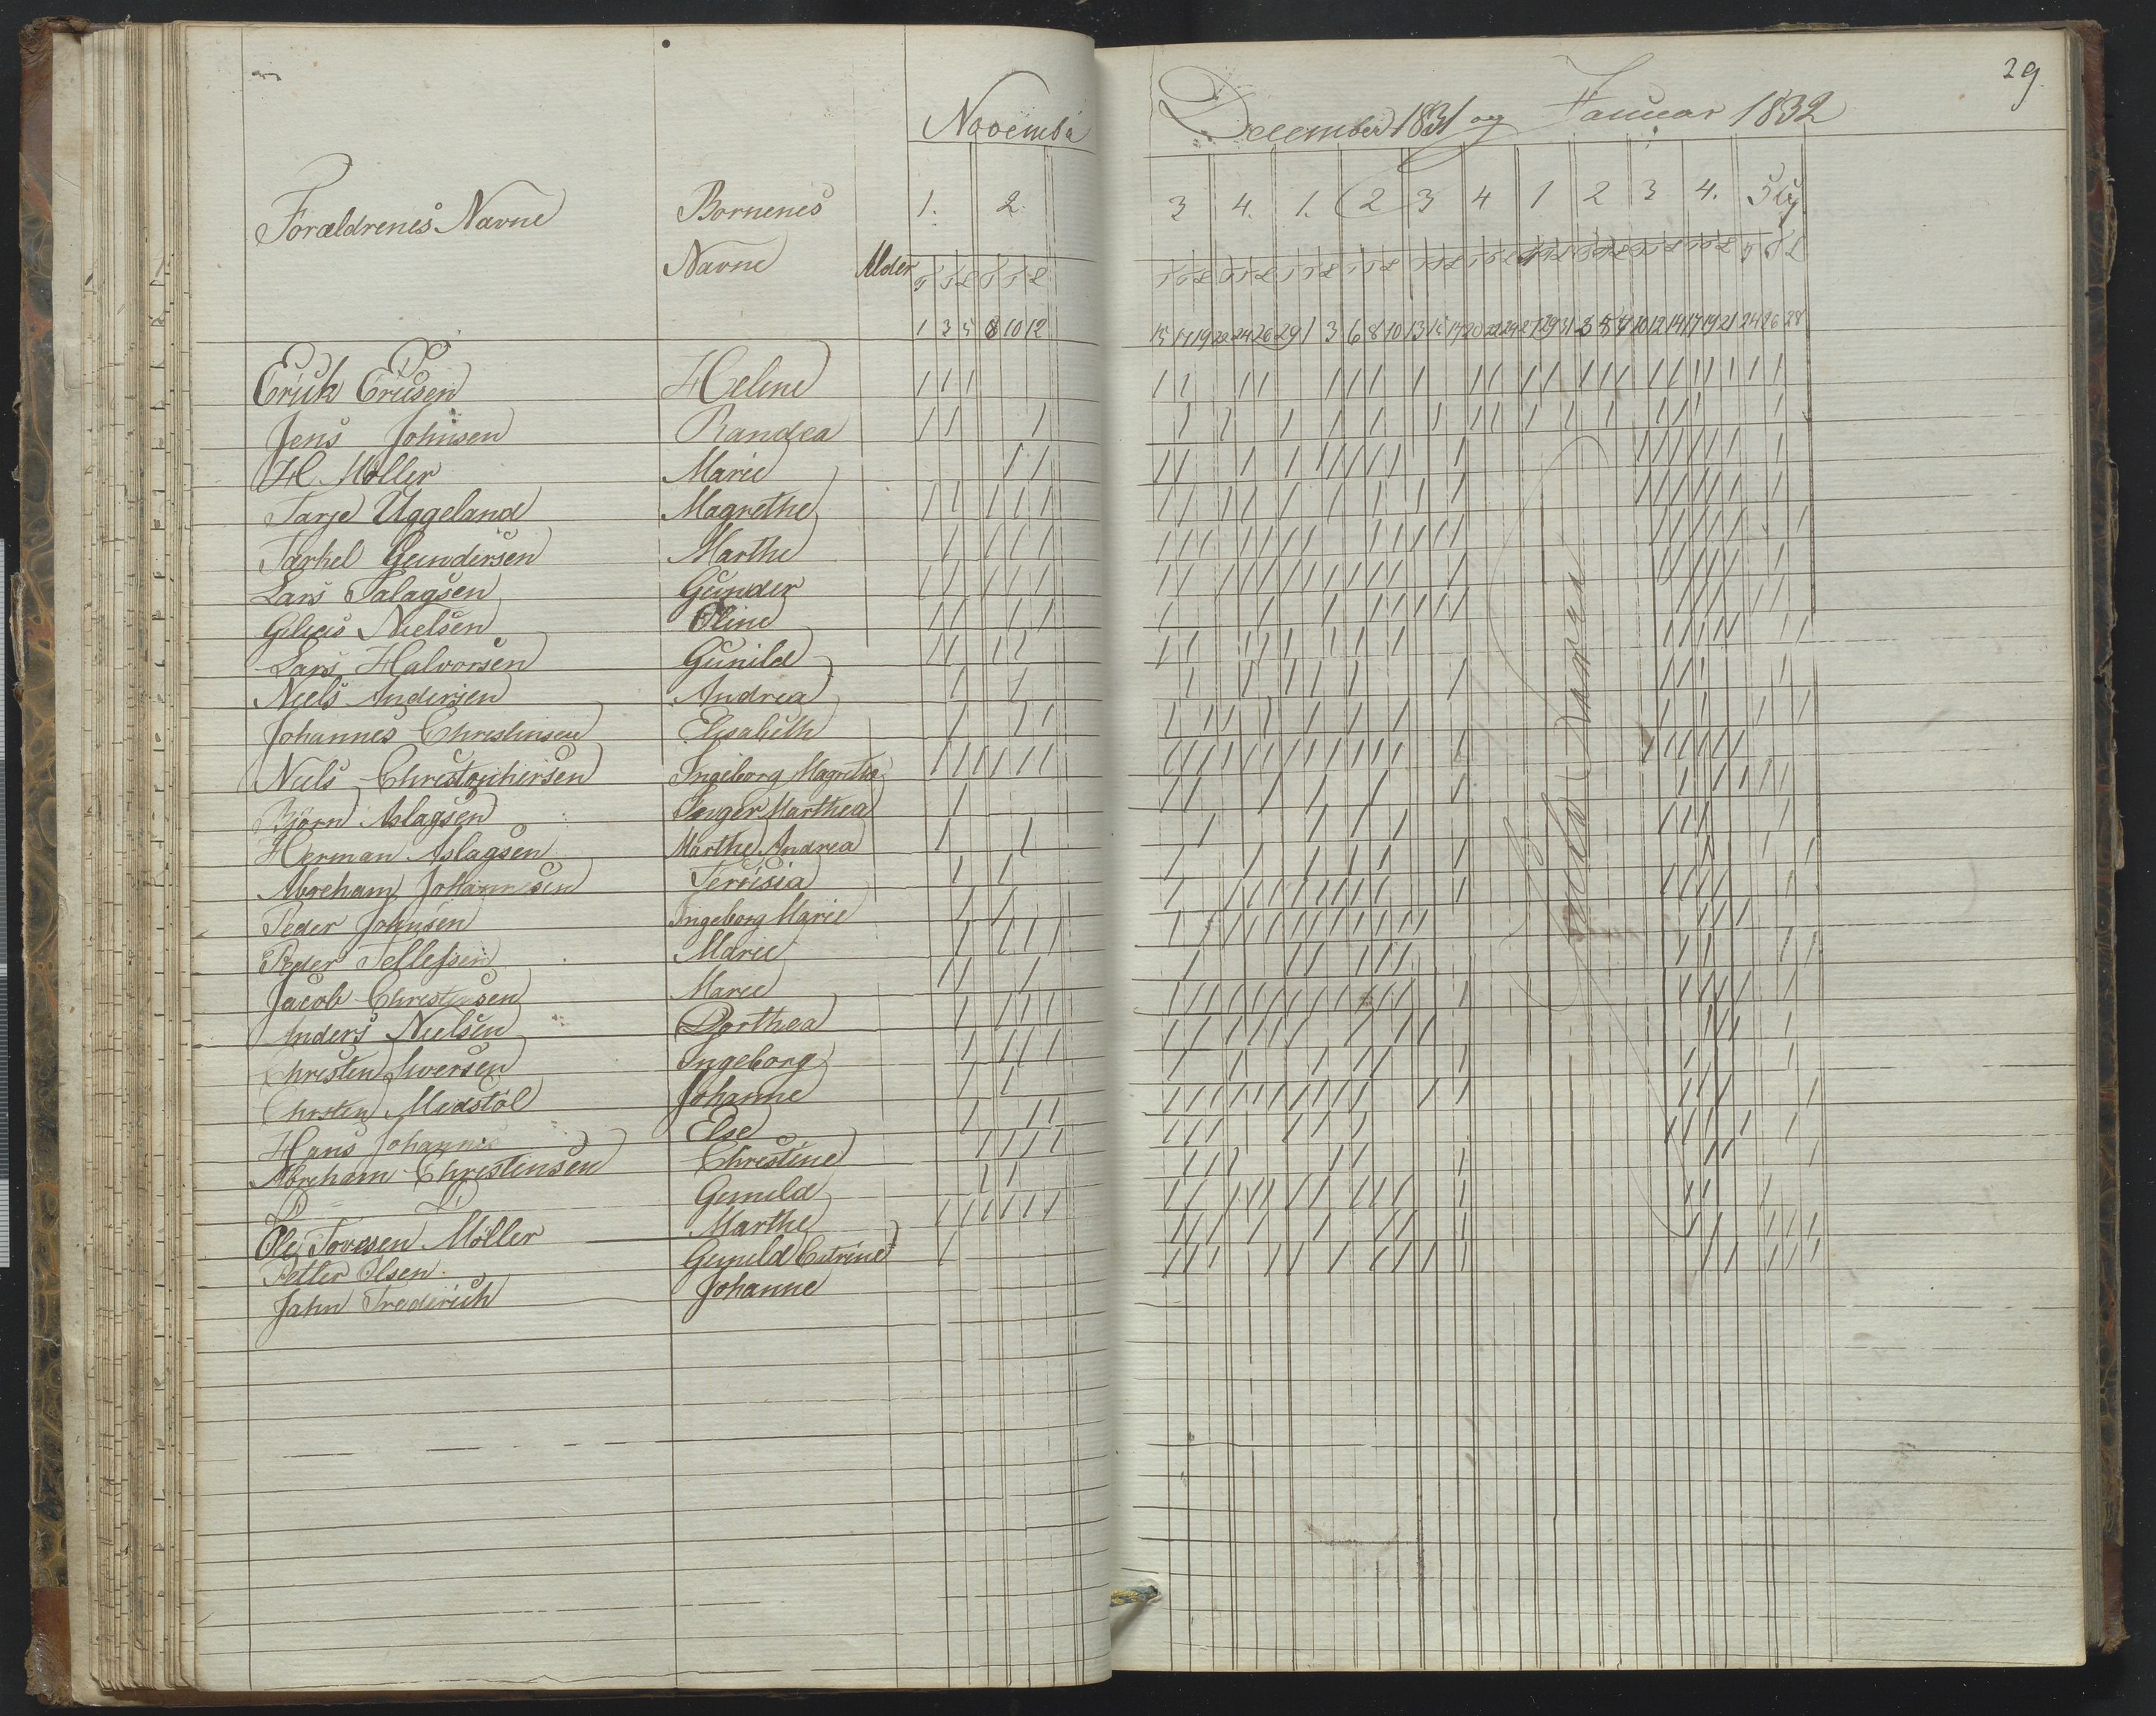 November
December 1831 og Januar 1832
29.
Forældrenes Navne Bornenes Navne Alder
1. 2. 3 4. 1. 2 3 4 1 2 3 4. 5
1 3 5 8 10 12 15 17 19 22 24 26 29 1 3 6 8 10 13 15 17 20 22 24 27 29 31 3 5 7 10 12 14 17 19 21 24 26 28
Erik Ericsen Helene
Jens Johnsen Randea
H. Møller Marie
Tarje Uggeland Magrethe
Tarkel Gundersen Marthe
Lars Salagsen Gunder
Nielsen Oline
Lars Halvorsen Gunild
Niels Andersen Andrea
Johannes Christensen Elisabeth
Niels Christophersen Ingeborg Magrethe
Bjørn Aslagsen Inger Marthea
Herman Aslagsen Marthe Andrea
Abreham Johannesen Teresia
Peder Johnsen Ingeborg Marie
Peder Tellefsen Marie
Jacob Christensen Marie
Anders Nielsen Dorthea
Christen Iversen Ingeborg
Christen Midstøl Johanne
Hans Johannes Else
Abreham Christensen Christine
Gunild
Ole Tovesen Møller Marthe
Petter Olsen Gunild Catrine
Jahn Frederich Johanne